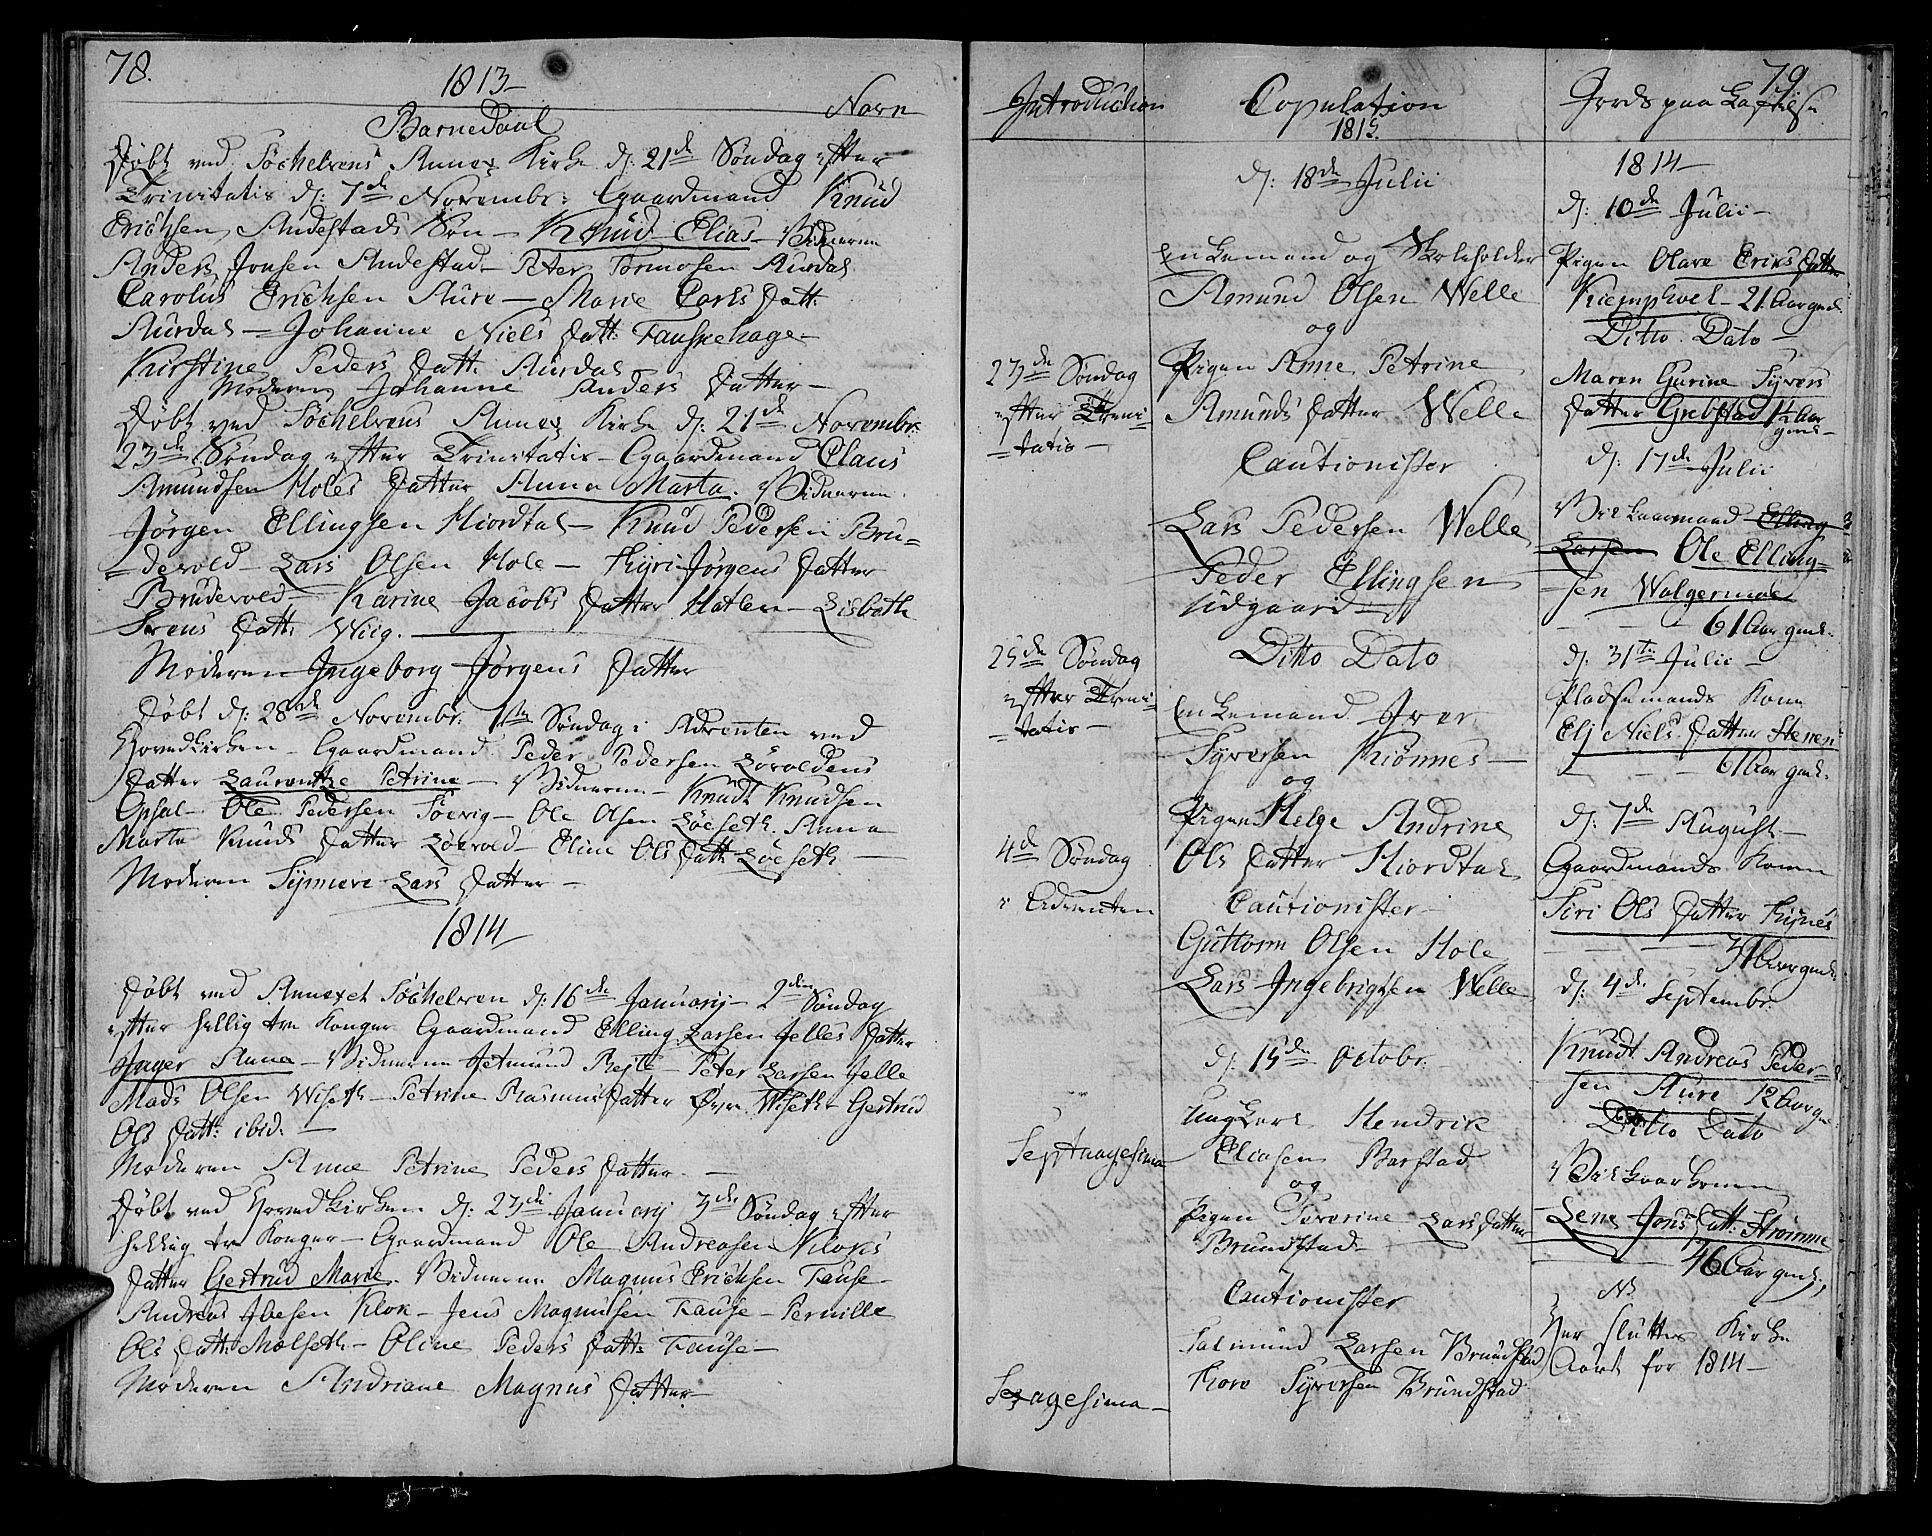 78.
1813
Navn
Barnedaab
Døbt ved Søchelvens Annex Kirke d: 21de Søndag efter
Trinitatis d: 7de Novembr: Gaardmand Knud
Erichsen Andestads Søn - Knud Elias - Vidnerne
Anders Jonsen Andestad - Peter Tormosen Aurdal
Carolus Erichsen Aure - Marie Carls Datt:
Aurdal - Johanne Niels Datt: Fauskehage -
Kirstine Peders Datt: Aurdal
Moderen Johanne Anders Datter -
Døbt ved Søchelvens Annex Kirke d: 21de Novembr:
23de Søndag efter Trinitatis - Gaardmand Claus
Amundsen Holes Datter Anna Marta. Vidnerne
Jørgen Ellingsen Hiordtal - Knud Pedersen Bru=
=devold - Lars Olsen Hole - Kyri Jørgens Datter
Brudevold - Karine Jacobs Datter Hatlen - Lisbeth
Datt: Wiig.
Moderen Ingeborg Jørgens Datter
Døbt d: 28de Novembr. 1ste Søndag i Adventen ved
Hovedkirken - Gaardmand Peder Pedersen Løvoldens
Datter Laurentze Petrine - Vidnerne - Knudt Knudsen
Opsal - Ole Pedersen Søevig - Ole Olsen Løeseth. Anna
Marta Knuds Datter Løevold - Eline Ols Datt: Løeseth -
Moderen Synneve Lars Datter -
1814
Døbt ved Annexet Søchelven d: 16de Januarij - 2den Søndag
efter hellig tre Konger Gaardmand Elling Larsen Jelles Datter
Inger Anna - Vidnerne Jetmund Rejte - Peter Larsen Jelle
Mads Olsen Wiseth - Petrine Rasmus Datter Øvre Wiseth - Gertrud
Ols Datt: ibid: -
Moderen Anne Petrine Peders Datter -
Døbt ved Hovedkirken d: 23de Januarij 3de Søndag efter
hellig tre Konger - Gaardmand Ole Andreasen Kloks
Datter Gertrud Marie. Vidnerne Magnus Erichsen Fause -
Andreas Ibesen Klok - Jens Magnusen Fause - Pernille
Ols Datt: Molseth - Oline Peders Datt: Fause -
Moderen Andriane Magnus Datter -
79
Introduction
23de Søndag
efter Treni-
=tatis -
25de Søndag
efter Treni-
=tatis -
4de Søndag
i Adventen
Septuagesima
Sexagesima -
Copulation
1813.
d: 18de Julii
Enkemand og Skoleholder
Amund Olsen Welle
og
Pigen Anne Petrine
Amunds Datter Welle
Cautionister
Lars Pedersen Welle
Peder Ellingsen
Udgaard -
Ditto Dato
Enkemand Iver
Syversen Kiønnes -
og
Pigen Helge Andrine
Ols Datter Hiordtal
Cautionister -
Guttorm Olsen Hole
Lars Ingebrigtsen Welle
d: 15de Octobr.
Ungkarl Hendrik
Eliasen Barstad
og
Pigen Severine Lars Datter
Brundstad -
Cautionister
Salmund Larsen Brundstad
Kore Syversen Brundstad
Jords paa Kastelse
1814 -
d: 10de Julii -
Pigen Olave Eriks Datter
Kiemphoel - 21 Aar gml.
Ditto Dato -
Maren Gurine Syvers
Datter Grebstad 1½ Aar
gml -
d: 17de Julii
Vilkaarmand Elling
Larsen Ole Elling=
=sen Walgermoe
61 Aar gml.
d: 31te Julii -
Pladsemands Kone
Eli Niels Datter Stenen
61 Aar gml.
d: 7de August. -
Gaardmands Konen
Siri Ols Datter
31 Aar gml.
d: 4de Septembr.
Knudt Andreas Peder-
sen Aure 12 Aar gm
Ditto Dato
Vilkaarkonen
Lene Jons Datt: Strømme
46 Aar gml.
NB.
Her slutter Kirke
Aaret for 1814 -